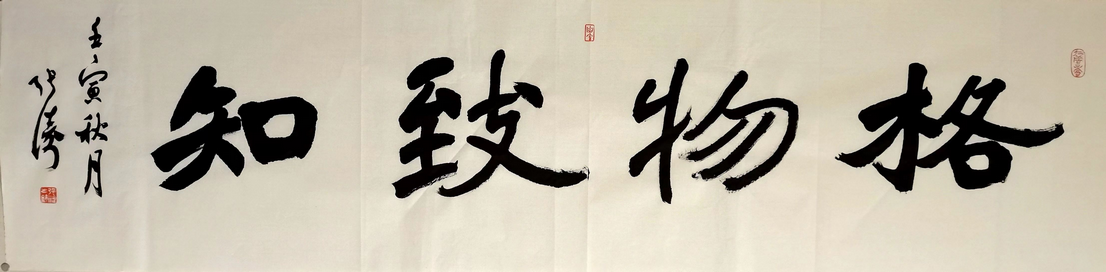 格物致知
壬寅秋月
张涛